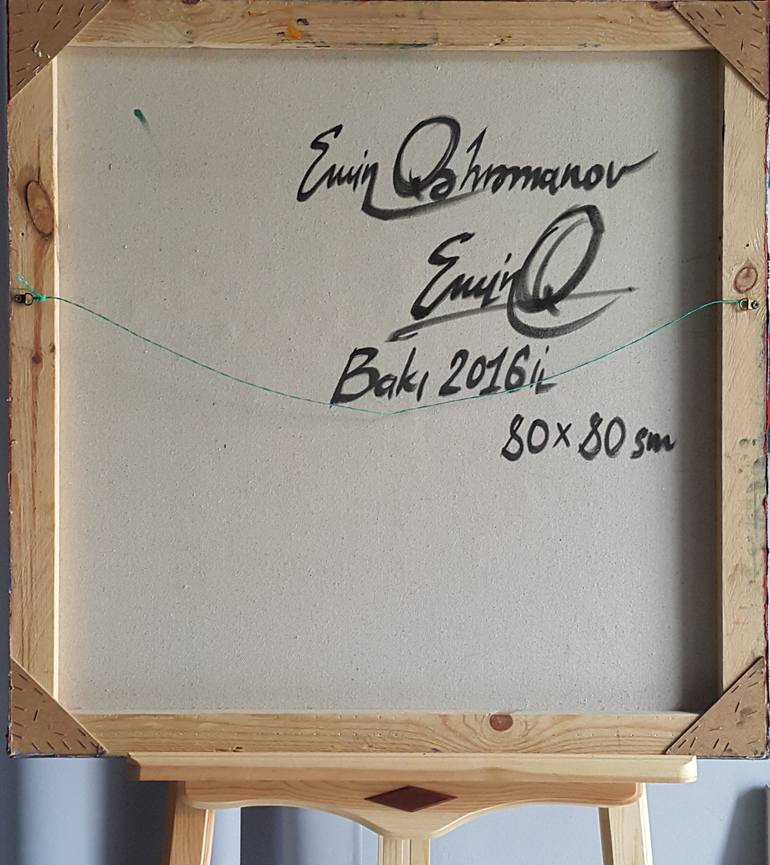 Emin Qəhrəmanov
EminQ
Bakı 2016 il
80 x 80 sm